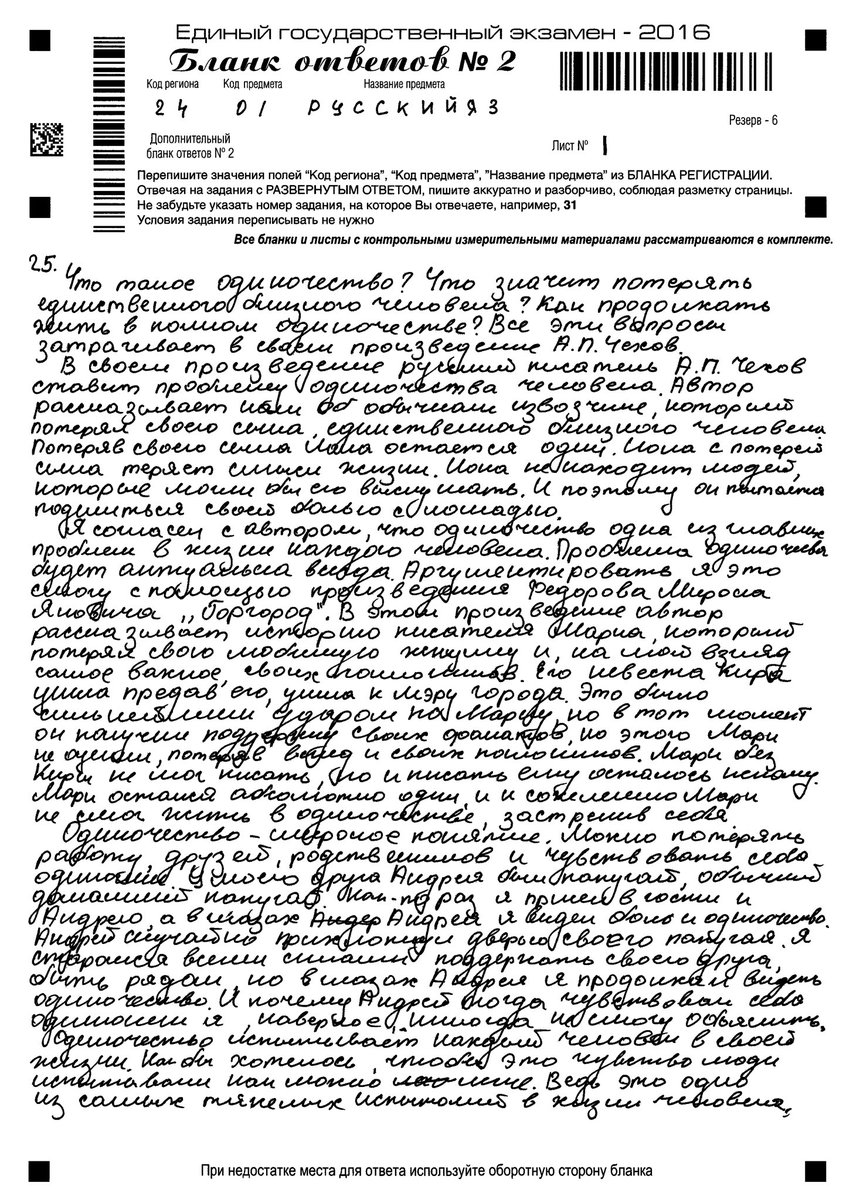 Единый государственный экзамен - 2016
Бланк ответов № 2
Код региона Код предмета Название предмета
24 01 РУССКИЙЯЗ
Резерв - 6
Дополнительный
бланк ответов № 2
Лист № 1
Перепишите значения полей "Код региона", "Код предмета", "Название предмета" из БЛАНКА РЕГИСТРАЦИИ.
Отвечая на задания с РАЗВЕРНУТЫМ ОТВЕТОМ, пишите аккуратно и разборчиво, соблюдая разметку страницы.
Не забудьте указать номер задания, на которое Вы отвечаете, например, 31
Условия задания переписывать не нужно
Все бланки и листы с контрольными измерительными материалами рассматриваются в комплекте.
25. Что такое одиночество? Что значит потерять
единственного близкого человека? Как продолжать
жить в полном одиночестве? Все эти вопросы
затрагивает в своем произведение А.П. Чехов.
В своем произведение русский писатель А.П. Чехов
ставит проблему одиночества человека. Автор
рассказывает нам об обычном извозчике, который
потерял своего сына, единственного близкого человека.
Потеряв своего сына Иона остается один. Иона с потерей
сына теряет смысл жизни. Иона не находит людей,
которые могли бы его выслушать. И поэтому он пытается
поделиться своей болью с лошадью.
Я согласен с автором, что одиночество одна из главных
проблем в жизни каждого человека. Проблема одиночества
будет актуальна всегда. Аргументировать я это
смогу с помощью произведения Федорова Мирона
Яновича „Горгород". В этом произведение автор
рассказывает историю писателя Марка, который
потерял свою любимую женщину и, на мой взгляд
самое важное, своих поклонников. Его невеста Кира
ушла предав его, ушла к мэру города. Это было
сильнейшим ударом по Марку, но в тот момент
он получил поддержку своих фанатов, но этого Марк
не оценил, потеряв вслед и своих поклонников. Марк без
Киры не мог писать, но и писать ему осталось некому.
Марк остался абсолютно один, и к сожелению Марк
не смог жить в одиночестве, застрелив себя.
Одиночество – широкое понятие. Можно потерять
работу, друзей, родственников и чувствовать себя
одиноким. У моего друга Андрея был попугай, обычный
домашний попугай. Как-то раз я пришел в гости к
Андрею, а в глазах Андрея я видел боль и одиночество.
Андрей случайно прихлопнул дверью своего попугая. Я
старался всеми силами поддержать своего друга,
быть рядом, но в глазах Андрея я продолжал видеть
одиночество. И почему Андрей тогда чувствовал себя
одиноким я, наверное, никогда не смогу объяснить.
Одиночество испытывает каждый человек в своей
жизни. Как бы хотелось, чтобы это чувство люди
испытывали как можно Ведь это одно
из самых тяжелых испытаний в жизни человека.
При недостатке места для ответа используйте оборотную сторону бланка